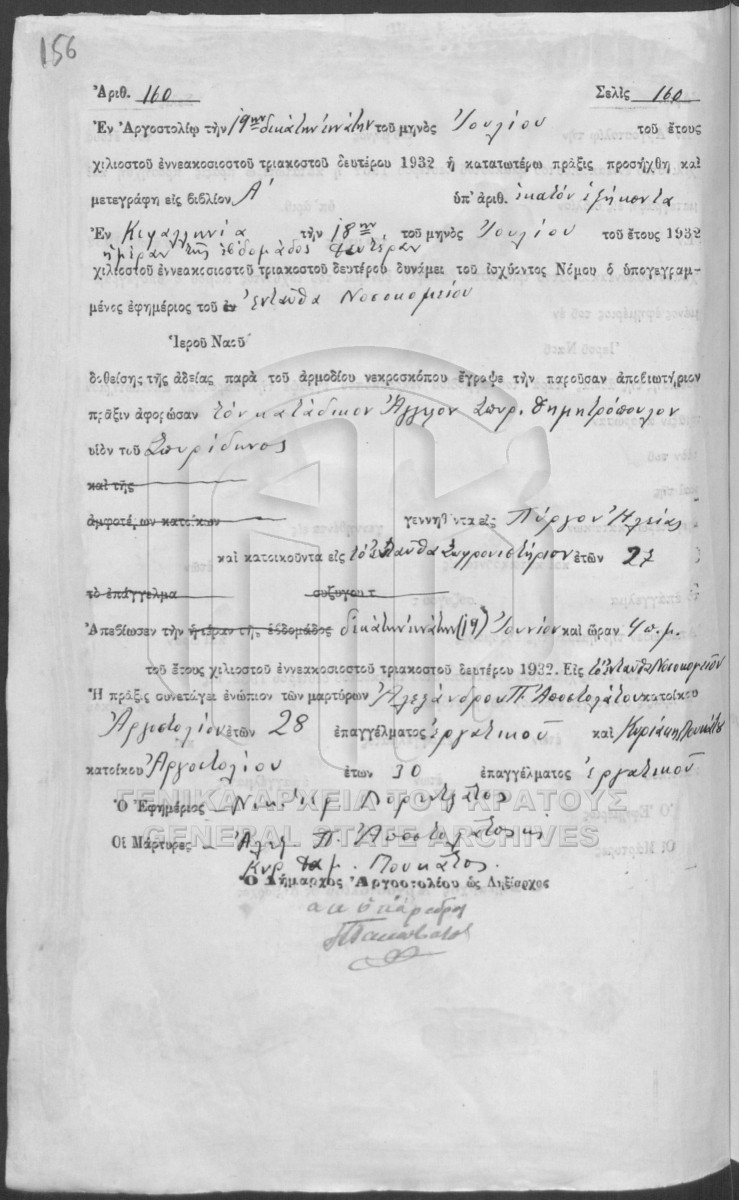 156
Ἀριθ. 160 Σελὶς 160
Ἐν Ἀργοστολίῳ τὴν 19ην δεκάτην ἐννάτην τοῦ μηνὸς Ἰουλίου τοῦ ἔτους
χιλιοστοῦ ἐννεακοσιοστοῦ τριακοστοῦ δευτέρου 1932 ἡ κατατωτέρω πρᾶξις προσήχθη καὶ
μετεγράφη εἰς βιβλίον Α' ὑπ' ἀριθ. ἑκατὸν ἑξήκοντα
Ἐν Κεφαλληνίᾳ τὴν 18ην τοῦ μηνὸς Ἰουλίου τοῦ ἔτους 1932
ἡμέραν τῆς ἑβδομάδος Δευτέραν
χιλιοστοῦ ἐννεακοσιοστοῦ τριακοστοῦ δευτέρου δυνάμει τοῦ ἰσχύοντος Νόμου ὁ ὑπογεγραμ-
μένος ἐφημέριος τοῦ ἐν ἐνταῦθα Νοσοκομείου
Ἱεροῦ Ναοῦ
δοθείσης τῆς ἀδείας παρὰ τοῦ ἁρμοδίου νεκροσκόπου ἔγραψε τὴν παροῦσαν ἀποβιωτήριον
πρᾶξιν ἀφορῶσαν τὸν κατάδικον Ἄγγελον Σπυρ. Δημητρόπουλον
υἱὸν τοῦ Σπυρίδωνος
καὶ τῆς
ἀμφοτέρων κατοίκων γεννηθέντα εἰς Πύργον Ἠλείας
καὶ κατοικοῦντα εἰς τὸ ἐνταῦθα Σωφρονιστήριον ἐτῶν 27
τὸ ἐπάγγελμα συζυγου τ
Ἀπεβίωσεν τὴν ἡμέραν τῆς ἑβδομάδος δεκάτην ἐννάτην (19) Ἰουνίου καὶ ὥραν 4 π.μ.
τοῦ ἔτους χιλιοστοῦ ἐννεακοσιοστοῦ τριακοστοῦ δευτέρου 1932. Εἰς τὸ ἐνταῦθα Νοσοκομεῖον
Ἡ πρᾶξις συνετάγει ἐνώπιον τῶν μαρτύρων Ἀλεξάνδρου Π. Ἀποστολάτου κατοίκου
Ἀργοστολίου ἐτῶν 28 ἐπαγγέλματος ἐργατικοῦ καὶ Κυριάκη Πουκάτου
κατοίκου Ἀργοστολίου ἐτων 30 ἐπαγγέλματος ἐργατικοῦ
Ὁ Ἐφημέριος
Οἱ Μάρτυρες Ἀλεξ. Π. Ἀποστολᾶτος
Κυρ Πουκᾶτος.
Ὁ Δήμαρχος Ἀργοστολίου ὡς Ληξίαρχος
ὁ πάρεδρος
ΓΕΝΙΚΑ ΑΡΧΕΙΑ ΤΟΥ ΚΡΑΤΟΥΣ
GENERAL STATE ARCHIVES